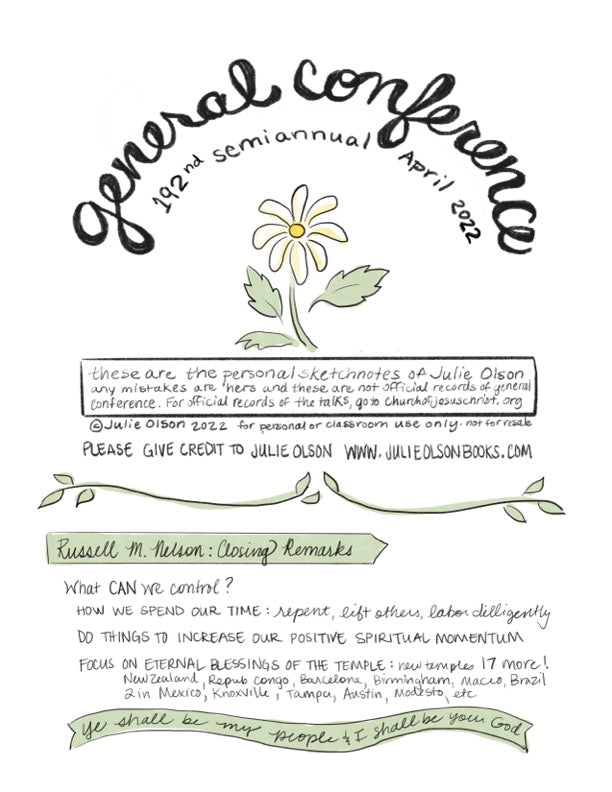 general conference
192nd semiannual April 2022
these are the personal sketchnotes of Julie Olson
any mistakes are hers and these are not official records of general
conference. For official records of the talks, go to churchofjesuschrist.org
©Julie Olson 2022 for personal or classroom use only. not for resale
PLEASE GIVE CREDIT TO JULIE OLSON WWW.JULIEOLSONBOOKS.COM
Russell M. Nelson: Closing Remarks
What CAN we control?
HOW WE SPEND OUR TIME: repent, lift others, labor dilligently
DO THINGS TO INCREASE OUR POSITIVE SPIRITUAL MOMENTUM
FOCUS ON ETERNAL BLESSINGS OF THE TEMPLE: new temples 17 more!
New Zealand, Repub Congo, Barcelona, Birmingham, Maceo, Brazil
2 in Mexico, Knoxville, Tampa, Austin, Modesto, etc
ye shall be my people & I shall be your God